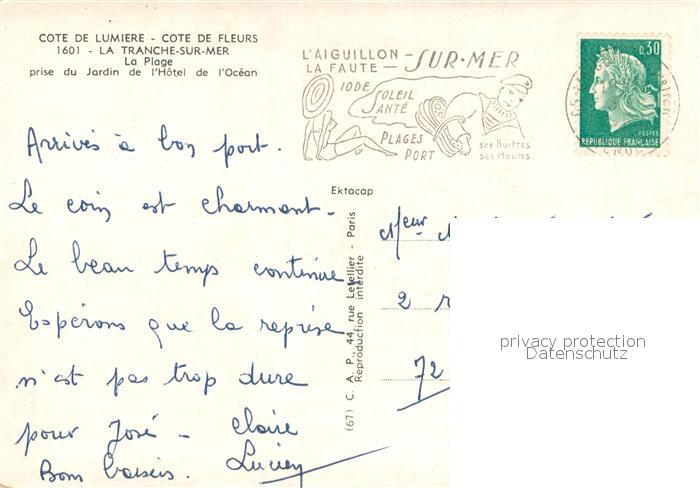 COTE DE LUMIERE - COTE DE FLEURS
1601 - LA TRANCHE-SUR-MER
La Plage
prise du Jardin de l'Hôtel de l'Océan
L'AIGUILLON - SUR-MER
LA FAUTE -
IODE
SOLEIL
SANTÉ
PLAGES
PORT
ses Huîtres
ses Moules
0,30
POSTES
REPUBLIQUE FRANÇAISE
Arrivés à bon port.
Le coin est charmant.
Le beau temps continue
Espérons que la reprise
n'est pas trop dure
pour José - Claire
Bons baisers. Lucien
Ektacap
(67) C. A. P., 44, rue Letellier - Paris
Reproduction interdite
Meur
2
72
privacy protection
Datenschutz